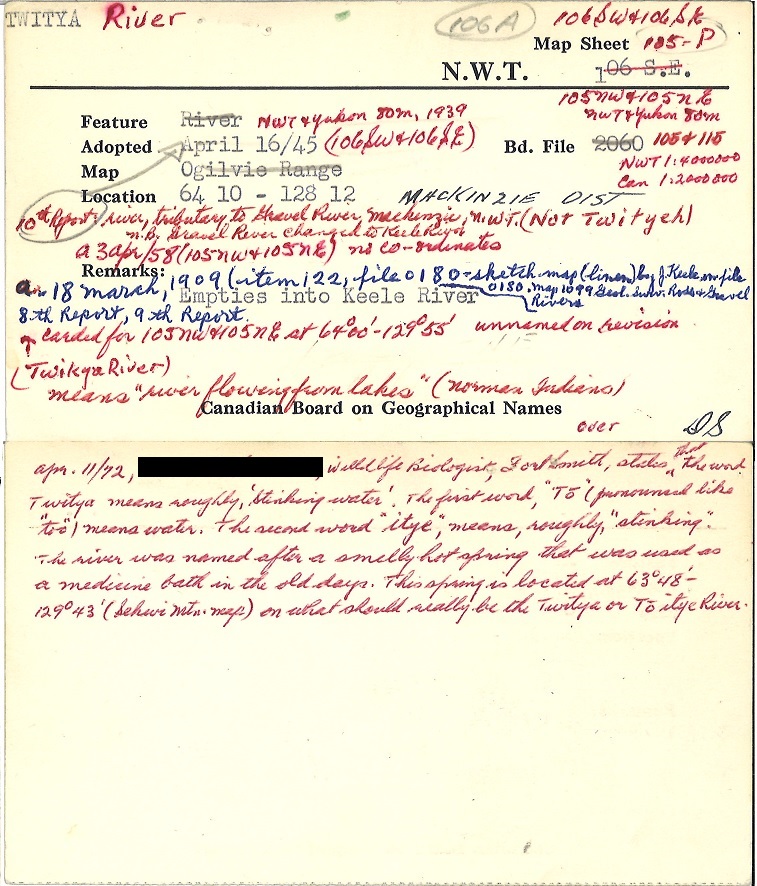 TWITYA River
106A
106SW&106SE
Map Sheet 105-P
N.W.T. 106 S.E.
105NW&105NE
NWT&Yukon 80m
Feature River NWT&Yukon 80m, 1939
Adopted April 16/45 (106SW&106SE)
Bd. File 2060 105&115
NWT 1:4000000
Can 1:2000000
Map Ogilvie Range
Location 64 10 - 128 12 MACKINZIE DIST
10th Report: river, tributary to Gravel River, Mackenzie, N.W.T. (Not Twityeh)
n.B. Gravel River changed to Keele River
a 3 apr/58 (105NW&105NE) no co-ordinates
Remarks:
18 march, 1909 (item 122, file 0180-sketch-map (linen) by J. Keele on file
0180. map 1099 Geol. Surv. Ross & Gravel
Rivers
Empties into Keele River
8th Report, 9th Report.
carded for 105NW&105NE at 64°00'-129°55' unnamed on revision
(Twikya River)
means "river flowing from lakes" (Norman Indians)
Canadian Board on Geographical Names
over DS
apr. 11/72, , Wildlife Biologist, Fort Smith, states, that "the word
Twitya means roughly, 'stinking water'. The first word, "To" (pronounced like
"too") means water. The second word "itye", means, roughly, "stinking".
The river was named after a smelly hot spring that was used as
a medicine bath in the old days. This spring is located at 63°48'-
129°43' (Sekwi Mtn. map) on what should really be the Twitya or To itye River.